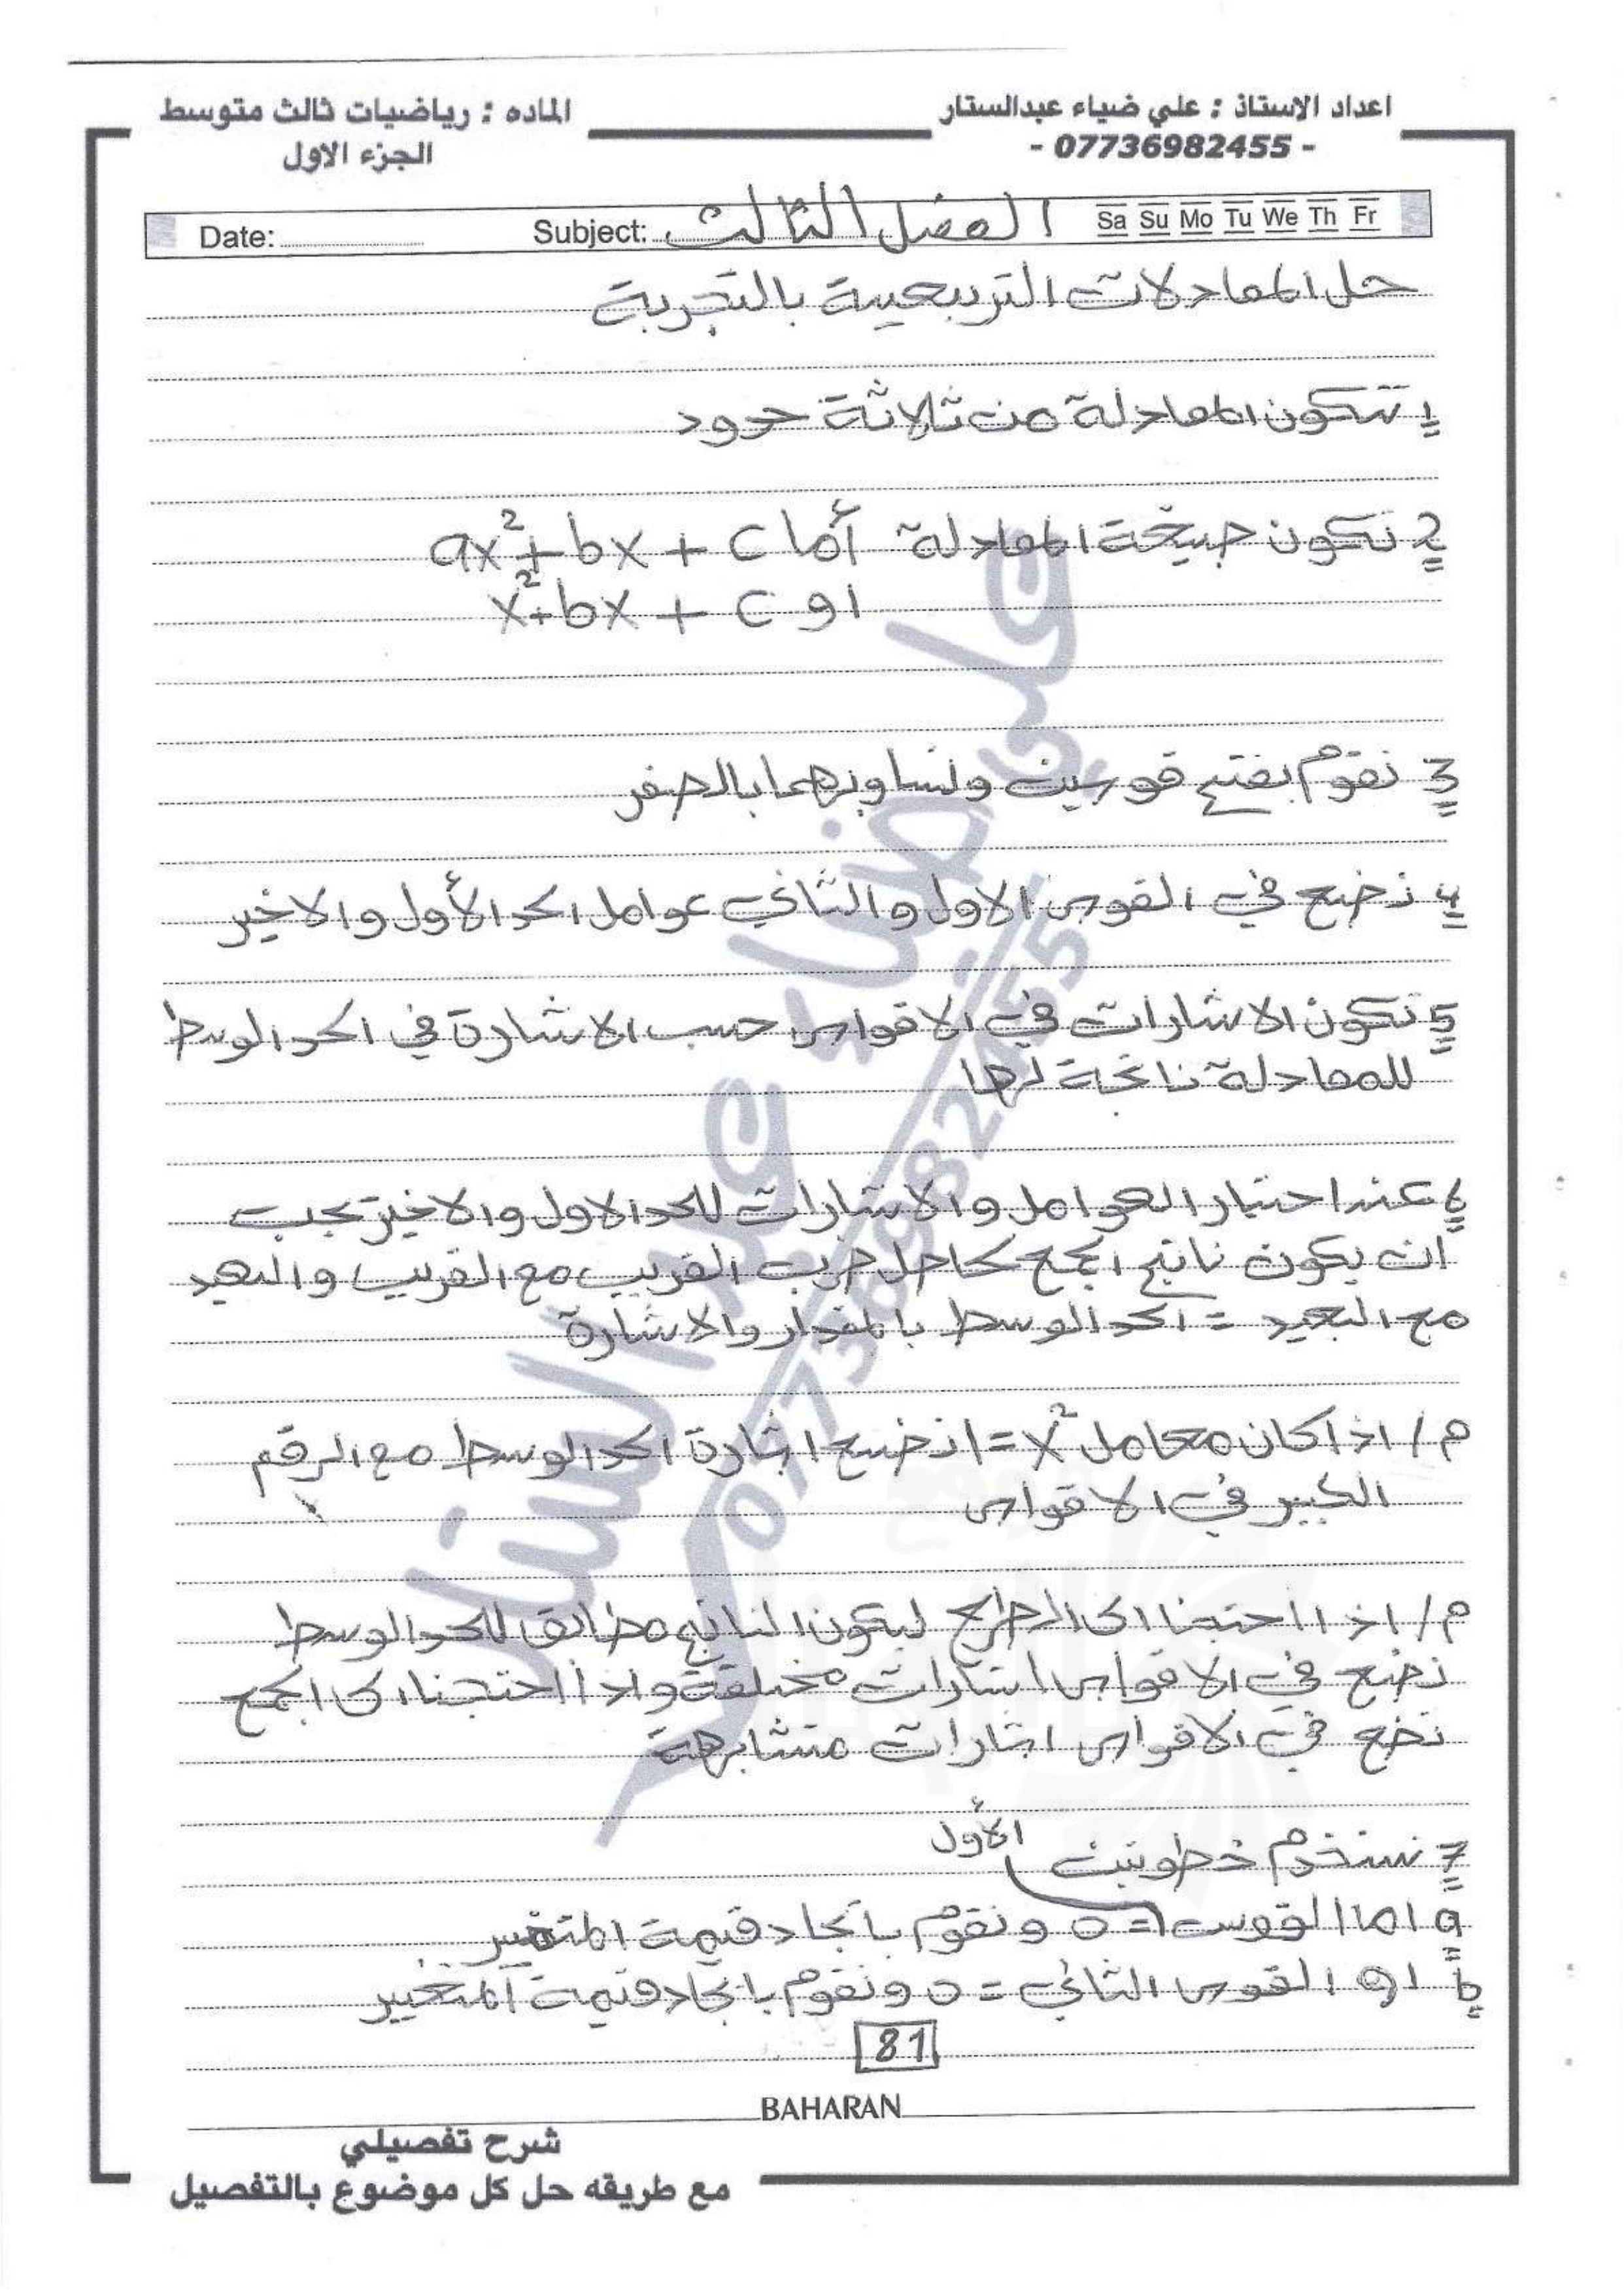 اعداد الاستاذ : علي ضياء عبدالستار
- 07736982455 -
الماده : رياضيات ثالث متوسط
الجزء الاول
Date: Subject: الفصل الثالث Sa Su Mo Tu We Th Fr
حل المعادلات التربيعية بالتجربة
1 تتكون المعادلة من ثلاثة حدود
2 تكون صيغة المعادلة أما ax²+bx+c
او x²+bx+c
3 نقوم بفتح قوسين ونساويهما بالصفر
4 نضع في القوس الاول والثاني عوامل الحد الأول والاخير
5 تكون الاشارات في الاقواس حسب الاشارة في الحد الوسط
للمعادلة ناتجة لها
6 عند اختيار العوامل والاشارات للحد الاول والاخير يجب
ان يكون ناتج الجمع لحاصل ضرب القريب مع القريب والبعيد
مع البعيد = الحد الوسط بالمقدار والاشارة
م/ اذا كان معامل x²=1 نضع اشارة الحد الوسط مع الرقم
الكبير في الاقواس
م/ اذا احتجنا الى الطرح ليكون الناتج مطابق للحد الوسط
نضع في الاقواس اشارات مختلفة واذا احتجنا الى الجمع
نضع في الاقواس اشارات متشابهة
7 نستخدم خطوتين
a اما القوس الأول = 0 ونقوم بايجاد قيمة المتغير
b او القوس الثاني = 0 ونقوم بايجاد قيمة المتغير
81
BAHARAN
شرح تفصيلي
مع طريقه حل كل موضوع بالتفصيل
علي ضياء عبدالستار
07736982455